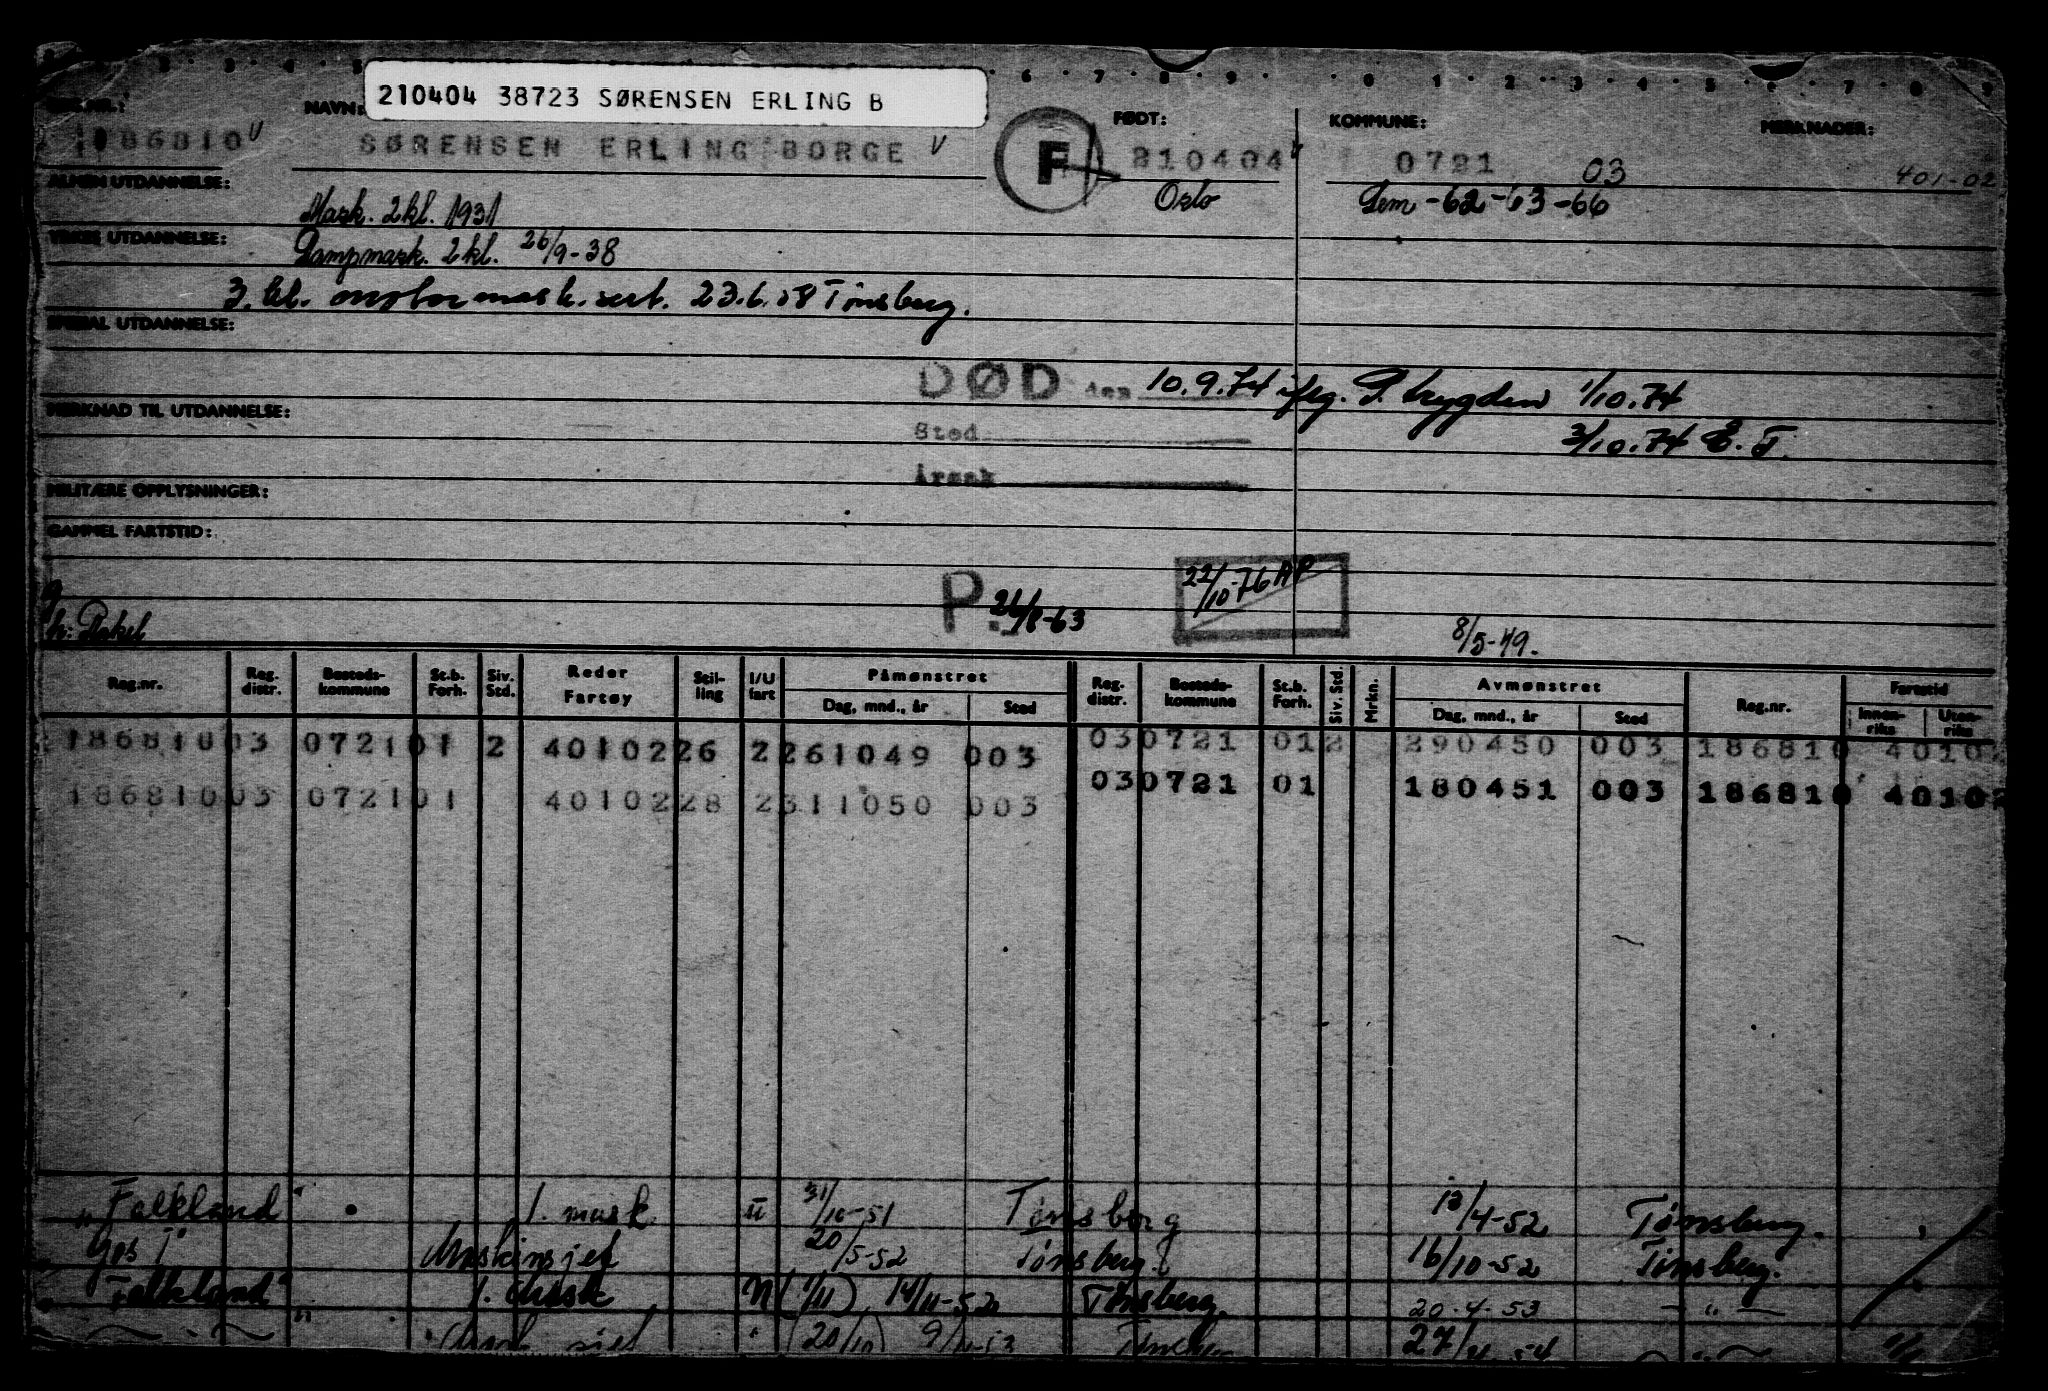 6 7 8 9 0 1 2 3 4 5 6 7 8 9
210404 38723 SØRENSEN ERLING B
NAVN: FØDT: KOMMUNE: MERKNADER:
186810 V SØRENSEN ERLING BORGE V F 210404 0721 03 401-02
ALMEN UTDANNELSE: Mask. 2 kl. 1931 Oslo Sem -62-63-66
YRKES UTDANNELSE: Dampmask. 2 kl. 26/9-38
3. kl. motormask. sert. 23.6.58 Tønsberg.
SPESIAL UTDANNELSE:
DØD den 10.9.74 iflg. P. trygden 1/10.74
MERKNAD TIL UTDANNELSE:
Sted 3/10.74 E.T.
Årsak
MILITÆRE OPPLYSNINGER:
GAMMEL FARTSTID:
P. 26/8-63 22/10-76 AP
h: Rakel 8/5-49.
Reg.nr. Reg. distr. Bosteds-kommune St.b. Forh. Siv. Std. Reder Fartøy Stil-ling I/U fart Påmønstret Dag, mnd., år Sted Reg. distr. Bosteds-kommune St.b. Forh. Siv. Std. Mrkn. Avmønstret Dag, mnd., år Sted Reg.nr. Fartstid Innen-riks Uten-riks
186810 03 0721 01 2 401022 26 2 261049 003 03 0721 01 2 290450 003 186810 4010
186810 03 0721 01 401022 28 2 311050 003 03 0721 01 180451 003 186810 4010
"Falkland" 1. mask. u 31/10-51 Tønsberg 13/4-52 Tønsberg.
Gos I" Maskinsjef 20/5-52 Tønsberg. 16/10-52 Tønsberg.
"Falkland" 1. Mask n (1/11) 14/11-52 Tønsberg. 20.4.53 — " —
(20/10) 27/4-54